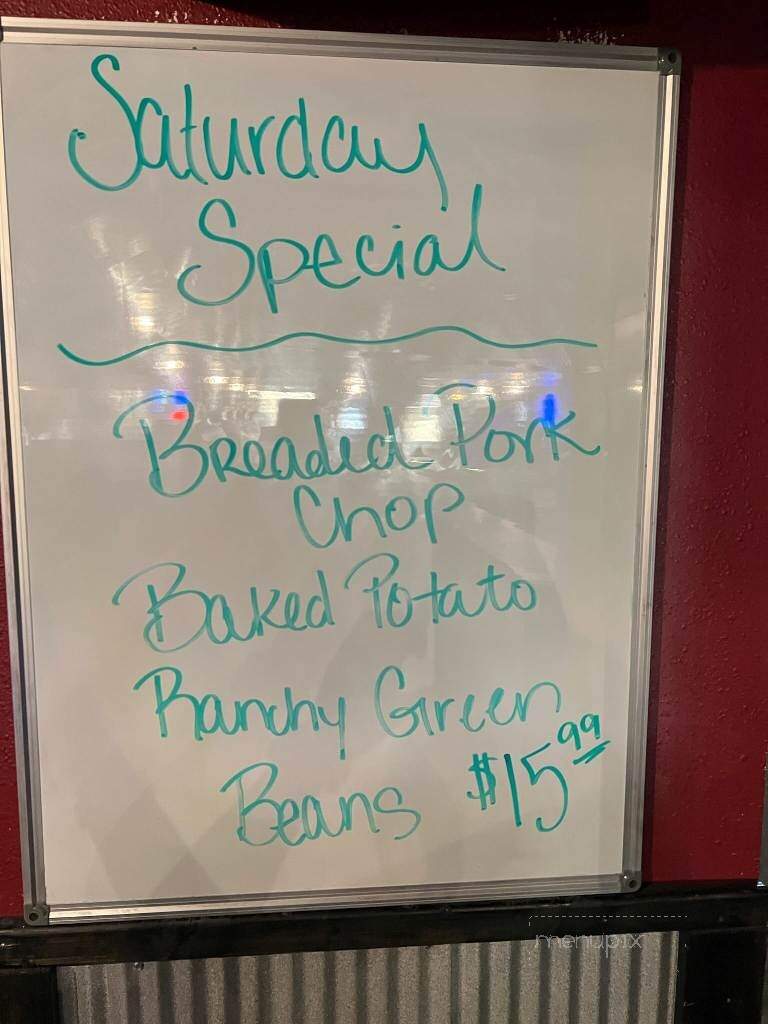 Saturday
Special
Breaded Pork
Chop
Baked Potato
Ranchy Green
Beans $15.99
menupix